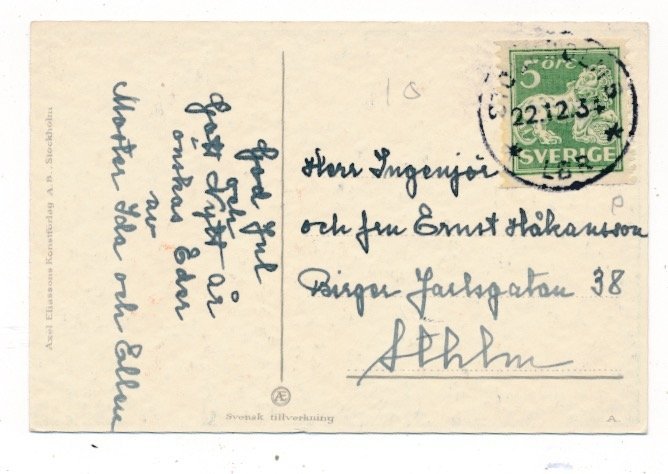 God Jul
och
Gott Nytt år
önskas Eder
av
Moster Ida och Ellen
5 öre
22.12.34
SVERIGE
LBR
Herr Ingenjör
och fru Ernst Håkansson
Birger Jarlsgatan 38
Sthlm
Axel Eliassons Konstförlag A. B., Stockholm
Æ
Svensk tillverkning
A.